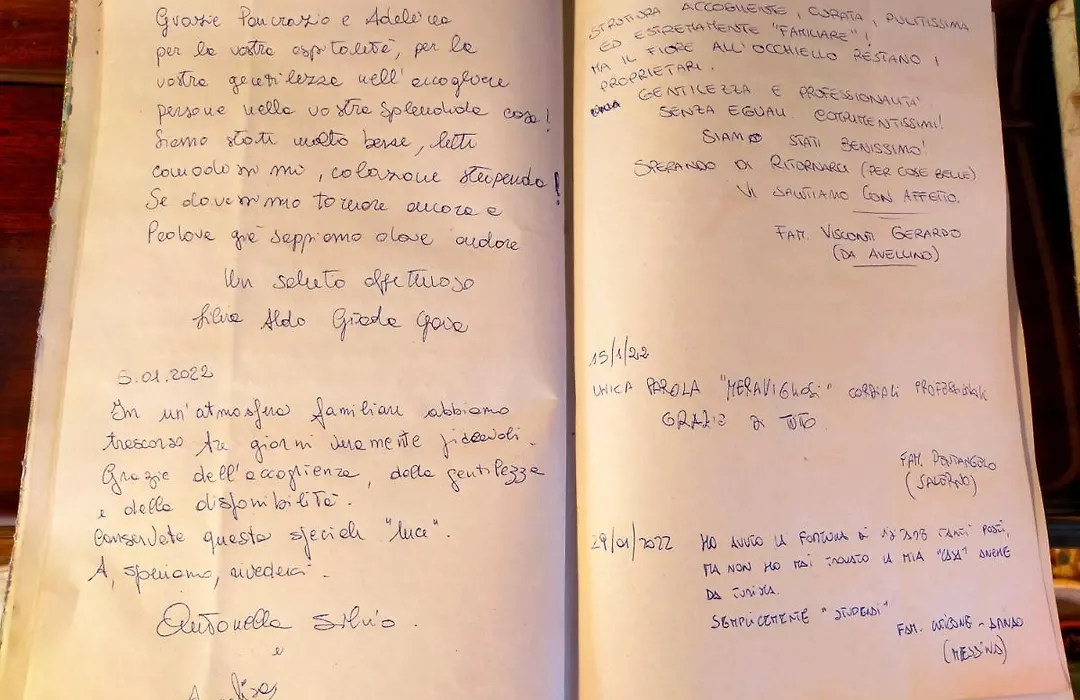 Grazie Pancrazio e Adelina
per la vostra ospitalità, per la
vostra gentilezza nell'accogliere
persone nella vostra splendida casa!
Siamo stati molto bene, letti
comodissimi, colazione stupenda!
Se dovessimo tornare ancora a
già sappiamo dove andare
Un saluto affettuoso
Silvia Aldo Giada Gaia
5.01.2022
In un'atmosfera familiare abbiamo
trascorso tre giorni veramente piacevoli.
Grazie dell'accoglienza, della gentilezza
e della disponibilità.
Conservate questa speciale "luce".
A, speriamo, rivederci.
Antonella Silvio.
e
STRUTTURA ACCOGLIENTE, CURATA, PULITISSIMA
ED ESTREMAMENTE "FAMILIARE"!
MA IL FIORE ALL'OCCHIELLO RESTANO I
PROPRIETARI.
GENTILEZZA E PROFESSIONALITA'
SENZA EGUALI. COMPLIMENTISSIMI!
SIAMO STATI BENISSIMO!
SPERANDO DI RITORNARCI (PER COSE BELLE)
VI SALUTIAMO CON AFFETTO.
FAM. VISCONTI GERARDO
(DA AVELLINO)
15/1/22
UNICA PAROLA "MERAVIGLIOSI" CORDIALI PROFESSIONALI
GRAZIE DI TUTTO
FAM. PENTANGELO
(SALERNO)
29/01/2022 HO AVUTO LA FORTUNA DI VISITARE TANTI POSTI,
MA NON HO MAI TROVATO LA MIA "CASA" ANCHE
DA TURISTA.
SEMPLICEMENTE "STUPENDI"
FAM.
(MESSINA)